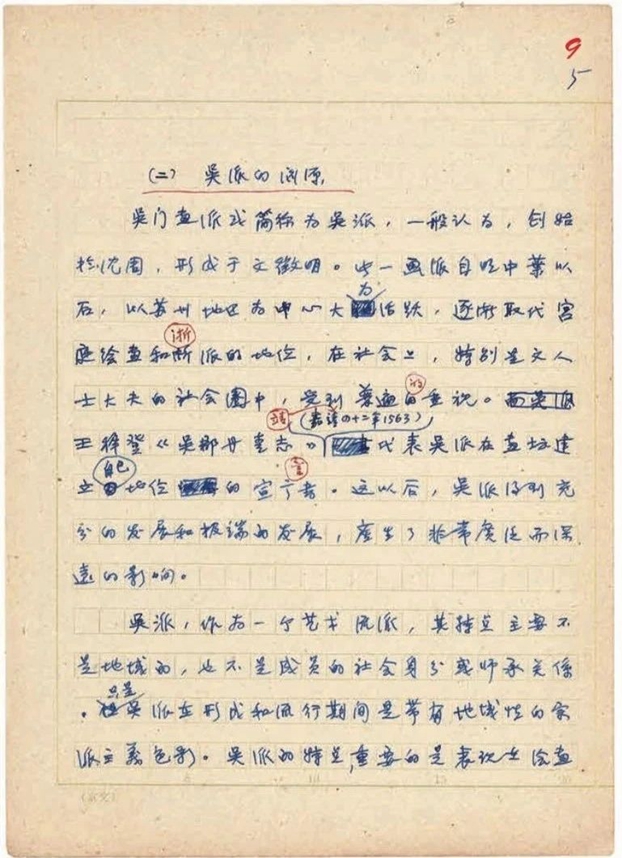 9
5
(二) 吴派的渊源
吴门画派或简称为吴派，一般认为，创始
于沈周，形成于文徵明。这一画派自明中葉以
后，以苏州地区为中心大为活跃，逐渐取代宫
庭绘画和浙派的地位，在社会上，特别是文人
士大夫的社会圈中，受到普遍的重视。
王穉登《吴郡丹青志》(嘉靖四十二年1563)代表吴派在画坛建
立自己地位的宣言者。这以后，吴派得到充
分的发展和极端的发展，産生了非常广泛而深
远的影响。
吴派，作为一个艺术流派，其特点主要不
是地域的，也不是成员的社会身分或师承关係
。只是吴派在形成和流行期间是带有地域性的宗
派主义色彩。吴派的特点，重要的是表现在绘画